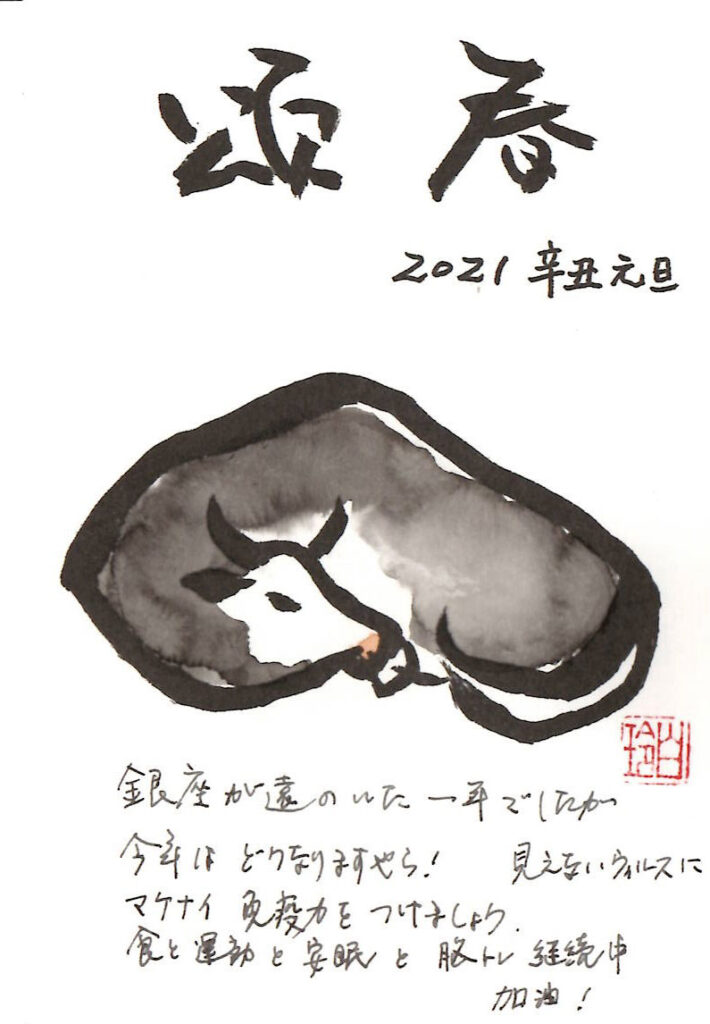 頌春
2021 辛丑元旦
銀座が遠のいた一年でしたが
今年はどうなりますやら! 見えないウィルスに
マケナイ免疫力をつけましょう.
食と運動と安眠と脳トレ継続中
加油!